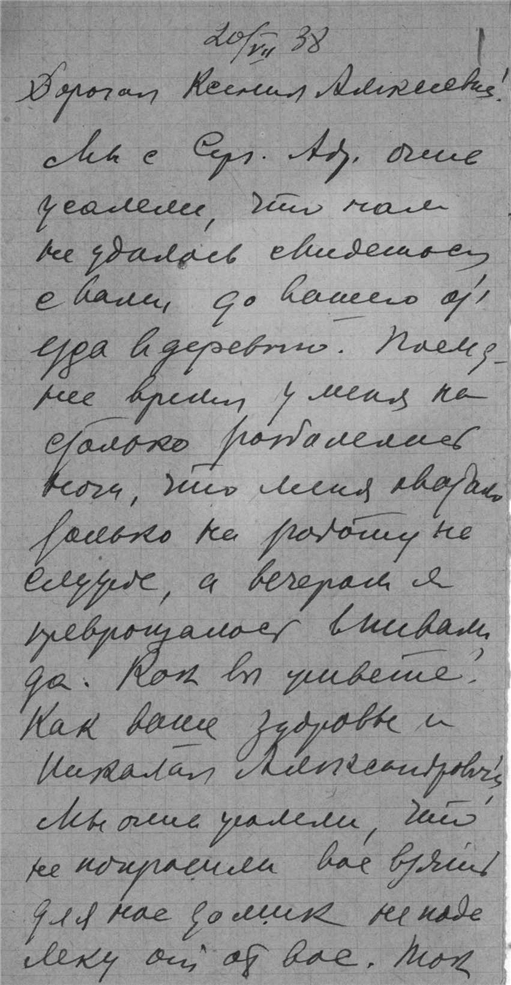 20/VII 38
Дорогая Ксения Алексеевна!
Мы с Серг. Адр. очень
жалели, что нам
не удалось свидеться
с вами, до вашего отъ
езда в деревню. Послед-
нее время у меня на
столько разболелись
ноги, что меня хватало
только на работу на
службе, а вечерами я
превращалась в инвали
да. Как вы живете?
Как ваше здоровье и
Николая Александровича
Мы очень жалели, что
не попросили вас взять
для нас домик непода
леку от вас. Так